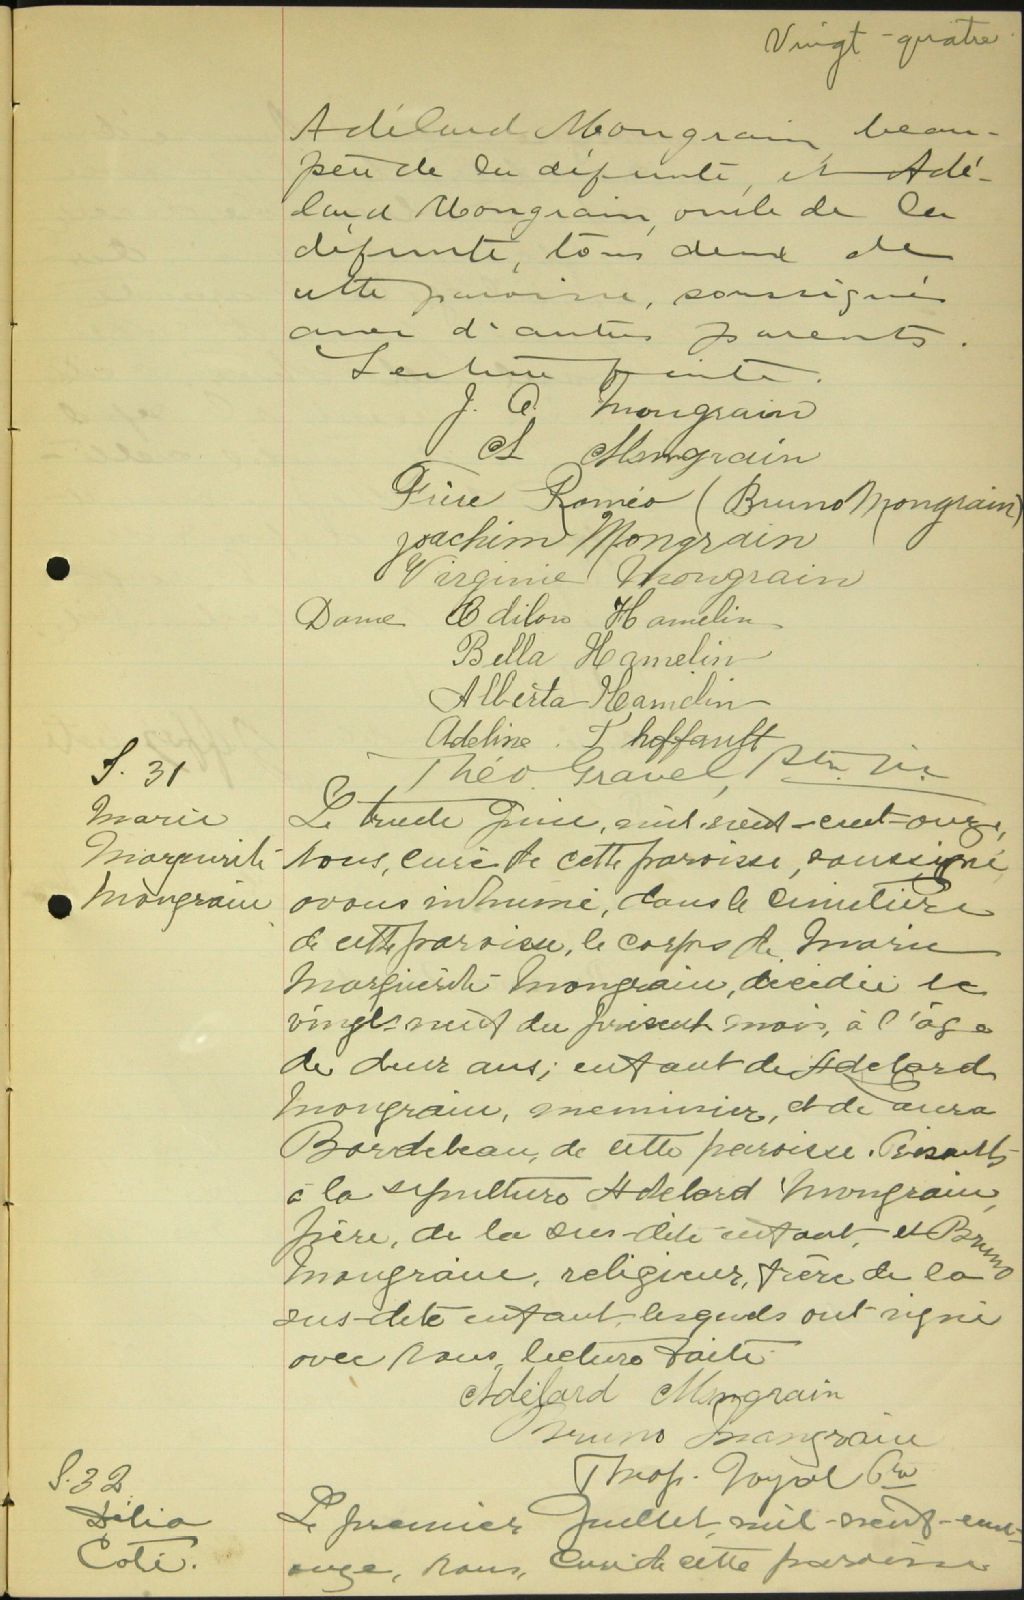 Vingt-quatre
Adélard Mongrain, beau-
père de la défunte, et Adé-
lard Mongrain, oncle de la
défunte, tous deux de
cette paroisse, soussignés
avec d'autres parents.
Lecture faite.
J. A. Mongrain
A Mongrain
Frère Roméo (Bruno Mongrain)
Joachim Mongrain
Virginie Mongrain
Dame Odilon Hamelin
Bella Hamelin
Alberta Hamelin
Adeline
Théo Gravel, Ptre Vic
S. 31
Marie
Marguerite
Mongrain
Le trente Juin, mil-neuf-cent-onze,
Nous, curé de cette paroisse, soussigné
avons inhumé, dans le cimetière
de cette paroisse, le corps de Marie
Marguerite Mongrain, décédée le
vingt-neuf du présent mois, à l'âge
de deux ans; enfant de Adelard
Mongrain, menuisier, et de Laura
Bordeleau, de cette paroisse. Présents
à la sépulture Adelard Mongrain,
père, de la sus-dite enfant, et Bruno
Mongrain, religieux, frère de la
sus-dite enfant, lesquels ont signé
avec nous, lecture faite.
Adélard Mongrain
Bruno Mongrain
Thop. Joyal Ptre
S. 32
Délia
Coté.
Le premier Juillet, mil-neuf-cent-
onze, nous, Curé de cette paroisse